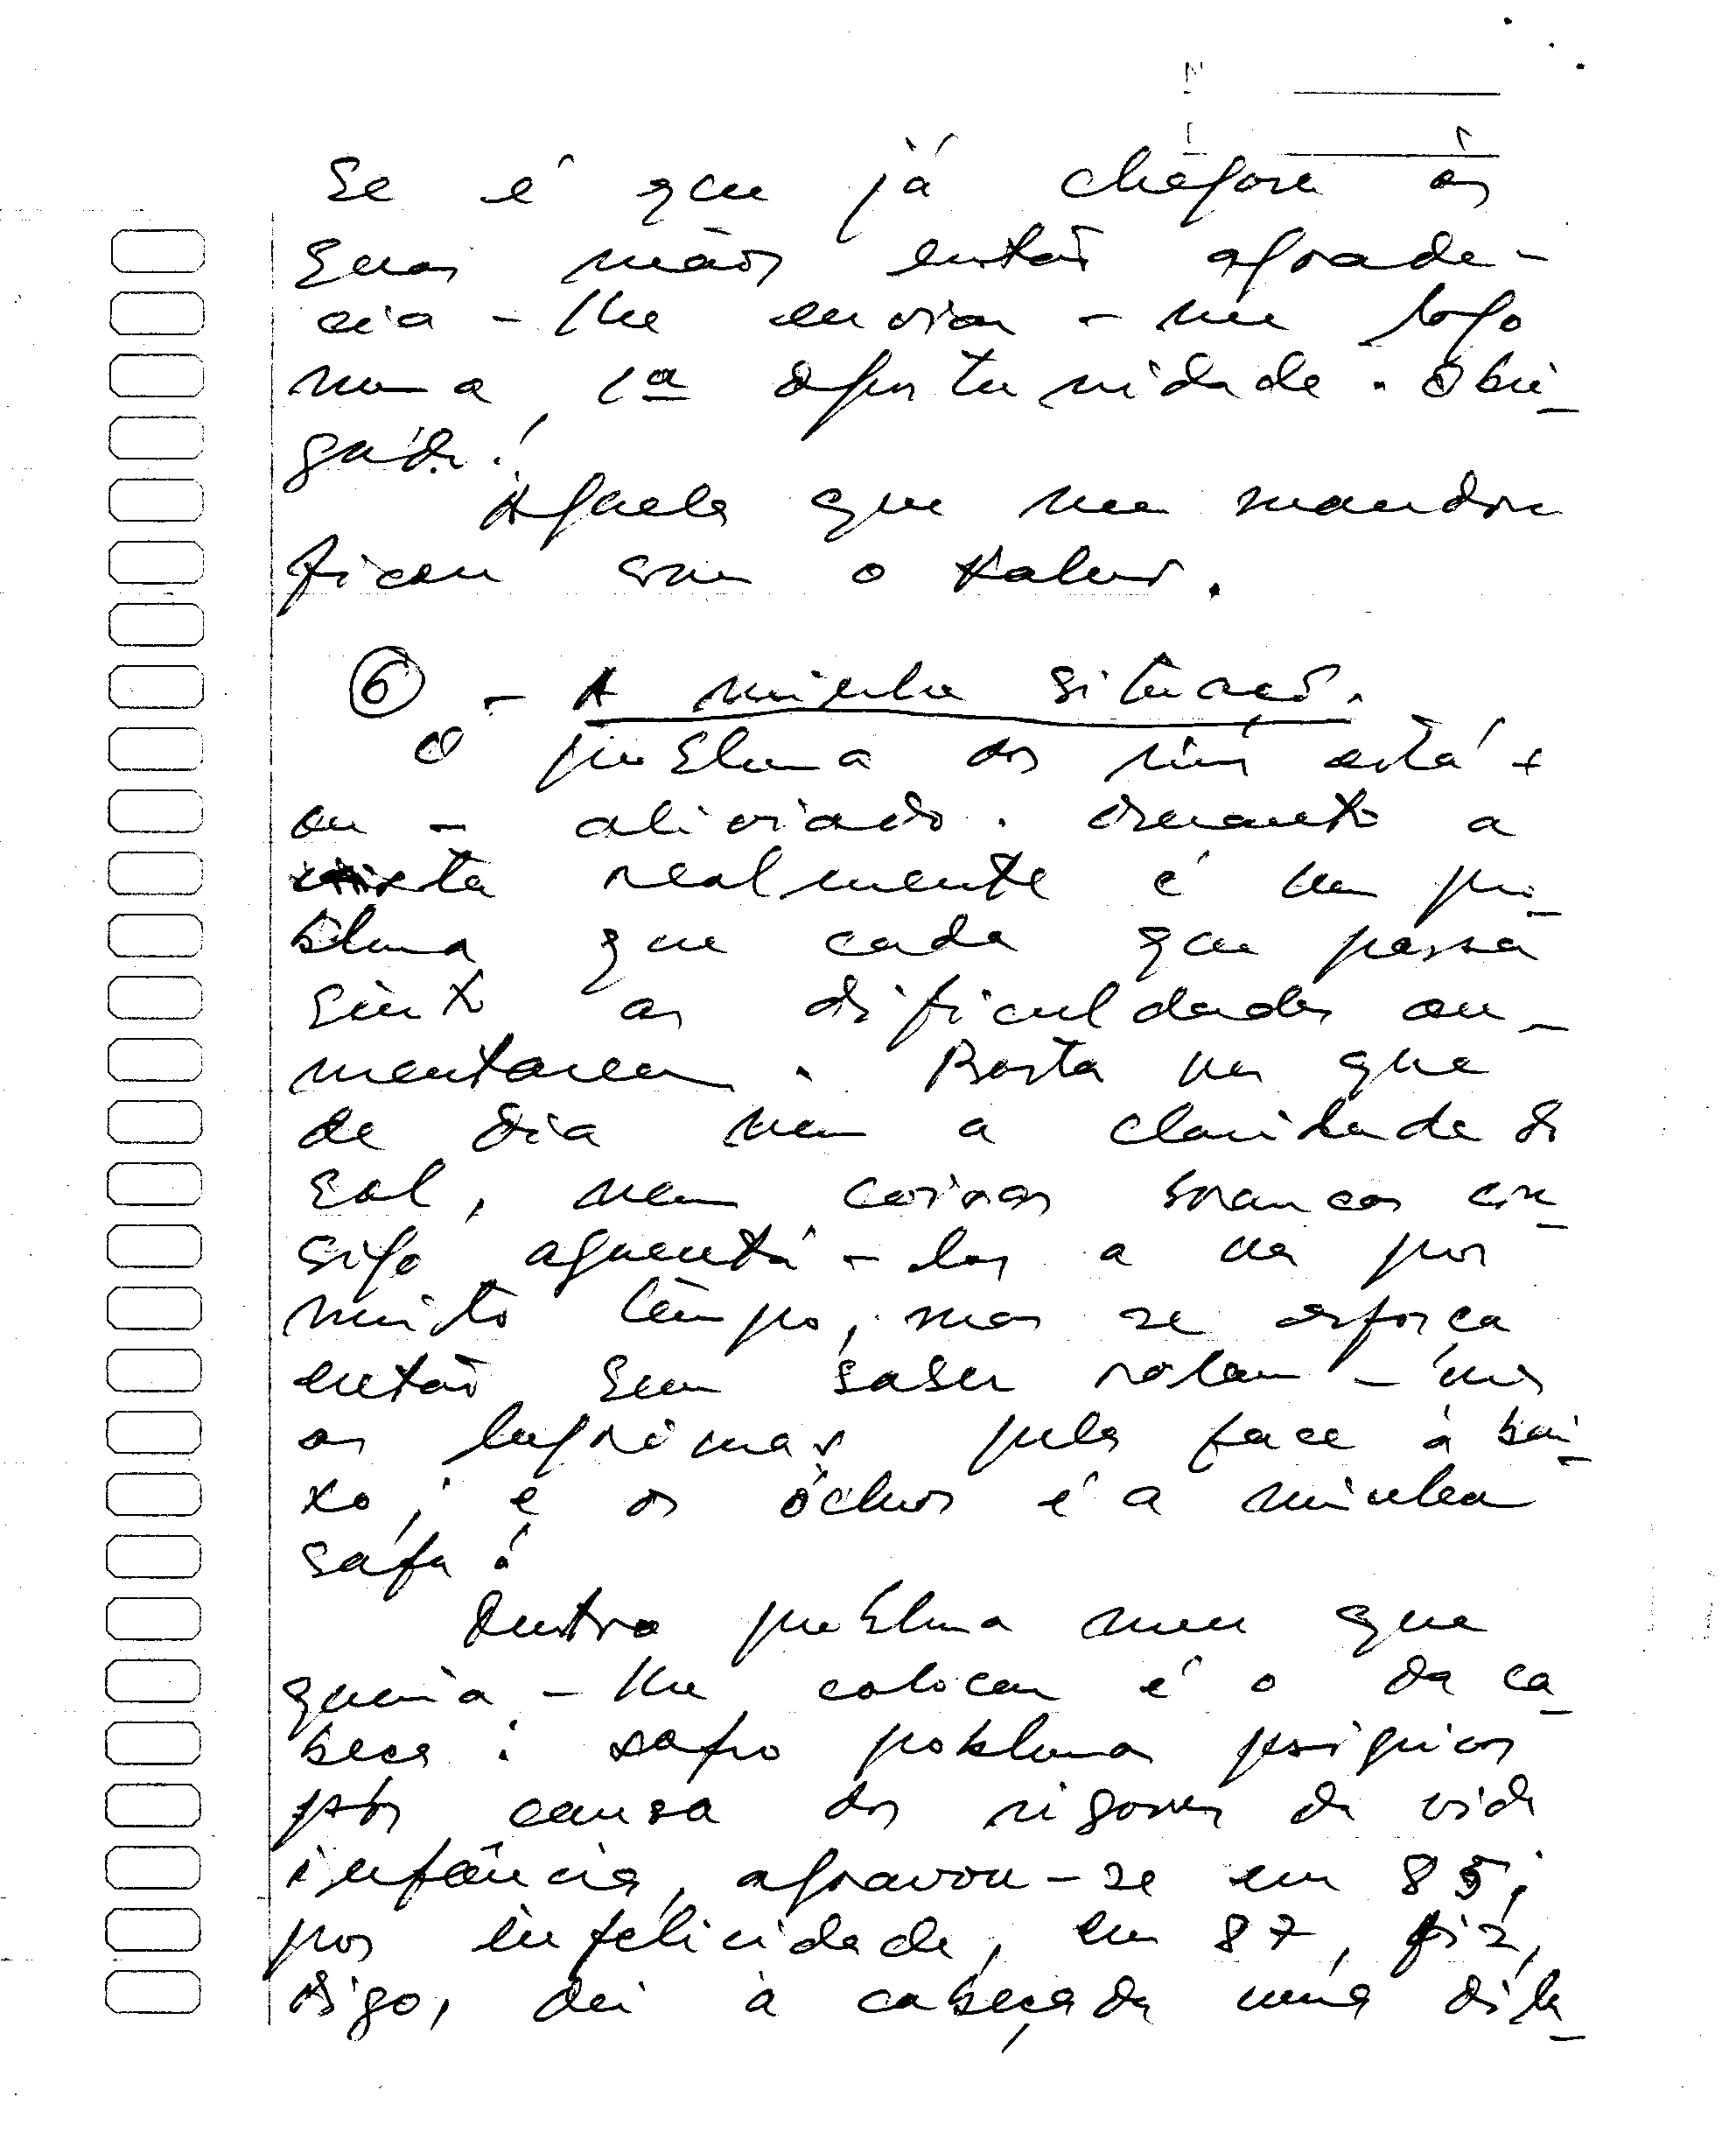 Se é que já chegou às
suas mãos então agrade-
cia-lhe enviar-me logo
numa 1ª oportunidade. Obri-
gado!
Aquela que me mandou
ficou com o
⑥ - A minha situação.
O problema dos rins está +
ou - aliviado. Quanto a
vista realmente é um pro-
blema que cada que passa
sinto as dificuldades au-
mentarem. Basta ver que
de dia nem a claridade do
sol, nem coisas brancas con-
sigo aguentá-las a ver por
muito tempo, mas se esforça
então sem saber rolam-me
as lágrimas pela face à bai-
xo; e os óclos é a minha
safa!
Outro problema meu que
queria-lhe colocar é o da ca-
beça: sofro poblemas psíquicos
por causa dos rigores da vida
infância, agravou-se em 85;
por infelicidade, em 87, fiz,
digo, dei à cabeçada uma